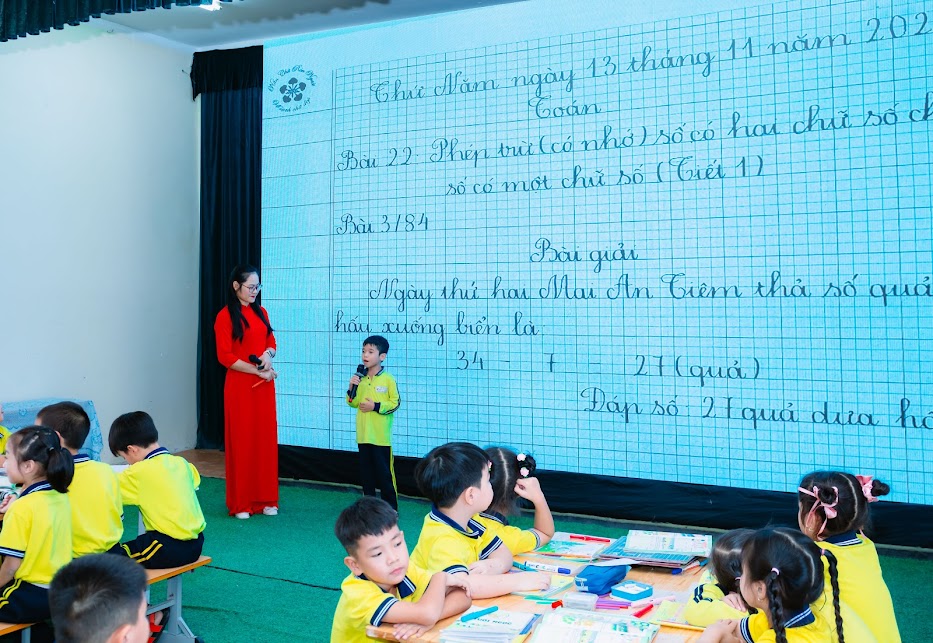 Thứ Năm ngày 13 tháng 11 năm 202
Toán
Bài 22: Phép trừ (có nhớ) số có hai chữ số ch
số có một chữ số (Tiết 1)
Bài 3/84
Bài giải
Ngày thứ hai Mai An Tiêm thả số quả
hấu xuống biển là
34 - 7 - 27 (quả)
Đáp số: 27 quả dưa hấ